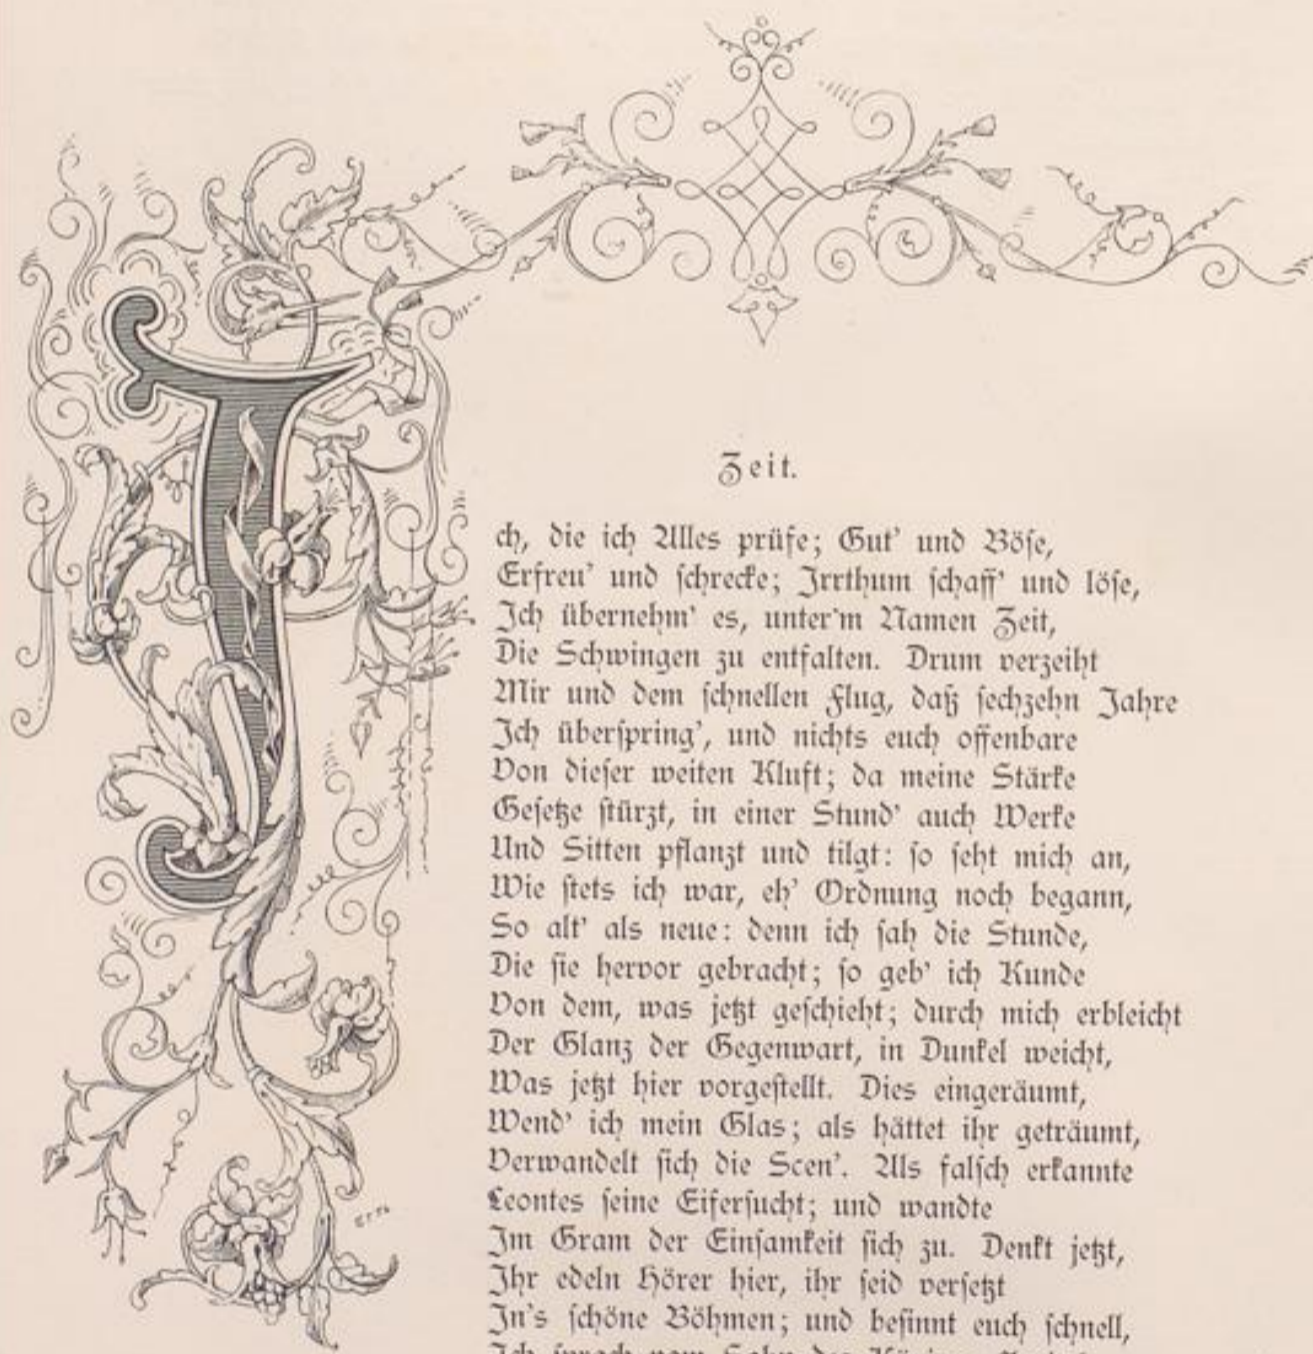 Zeit.
J
ch, die ich Alles prüfe; Gut' und Böſe,
Erfreu' und ſchrecke; Irrthum ſchaff' und löſe,
Ich übernehm' es, unter'm Namen Zeit,
Die Schwingen zu entfalten. Drum verzeiht
Mir und dem ſchnellen Flug, daß ſechzehn Jahre
Ich überſpring', und nichts euch offenbare
Von dieſer weiten Kluft; da meine Stärke
Geſetze ſtürzt, in einer Stund' auch Werke
Und Sitten pflanzt und tilgt: ſo ſeht mich an,
Wie ſtets ich war, eh' Ordnung noch begann,
So alt' als neue: denn ich ſah die Stunde,
Die ſie hervor gebracht; ſo geb' ich Kunde
Von dem, was jetzt geſchieht; durch mich erbleicht
Der Glanz der Gegenwart, in Dunkel weicht,
Was jetzt hier vorgeſtellt. Dies eingeräumt,
Wend' ich mein Glas; als hättet ihr geträumt,
Verwandelt ſich die Scen'. Als falſch erkannte
Leontes ſeine Eiferſucht; und wandte
Im Gram der Einſamkeit ſich zu. Denkt jetzt,
Ihr edeln Hörer hier, ihr ſeid verſetzt
In's ſchöne Böhmen; und beſinnt euch ſchnell,